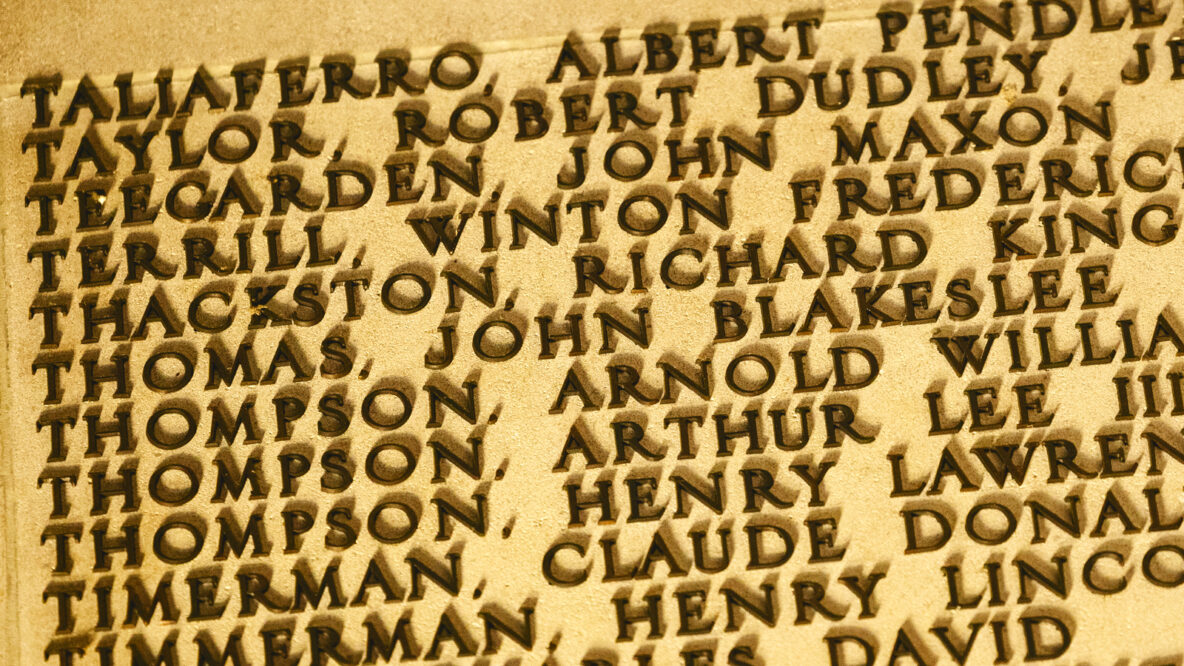 TALIAFERRO, ALBERT PENDLE
TAYLOR, ROBERT DUDLEY,
TEEGARDEN, JOHN MAXON
TERRILL, WINTON FREDERIC
THACKSTON, RICHARD KING
THOMAS, JOHN BLAKESLEE
THOMPSON, ARNOLD WILLIA
THOMPSON, ARTHUR LEE III
THOMPSON, HENRY LAWREN
TIMERMAN, CLAUDE DONAL
TIMMERMAN, HENRY LINCO
DAVID